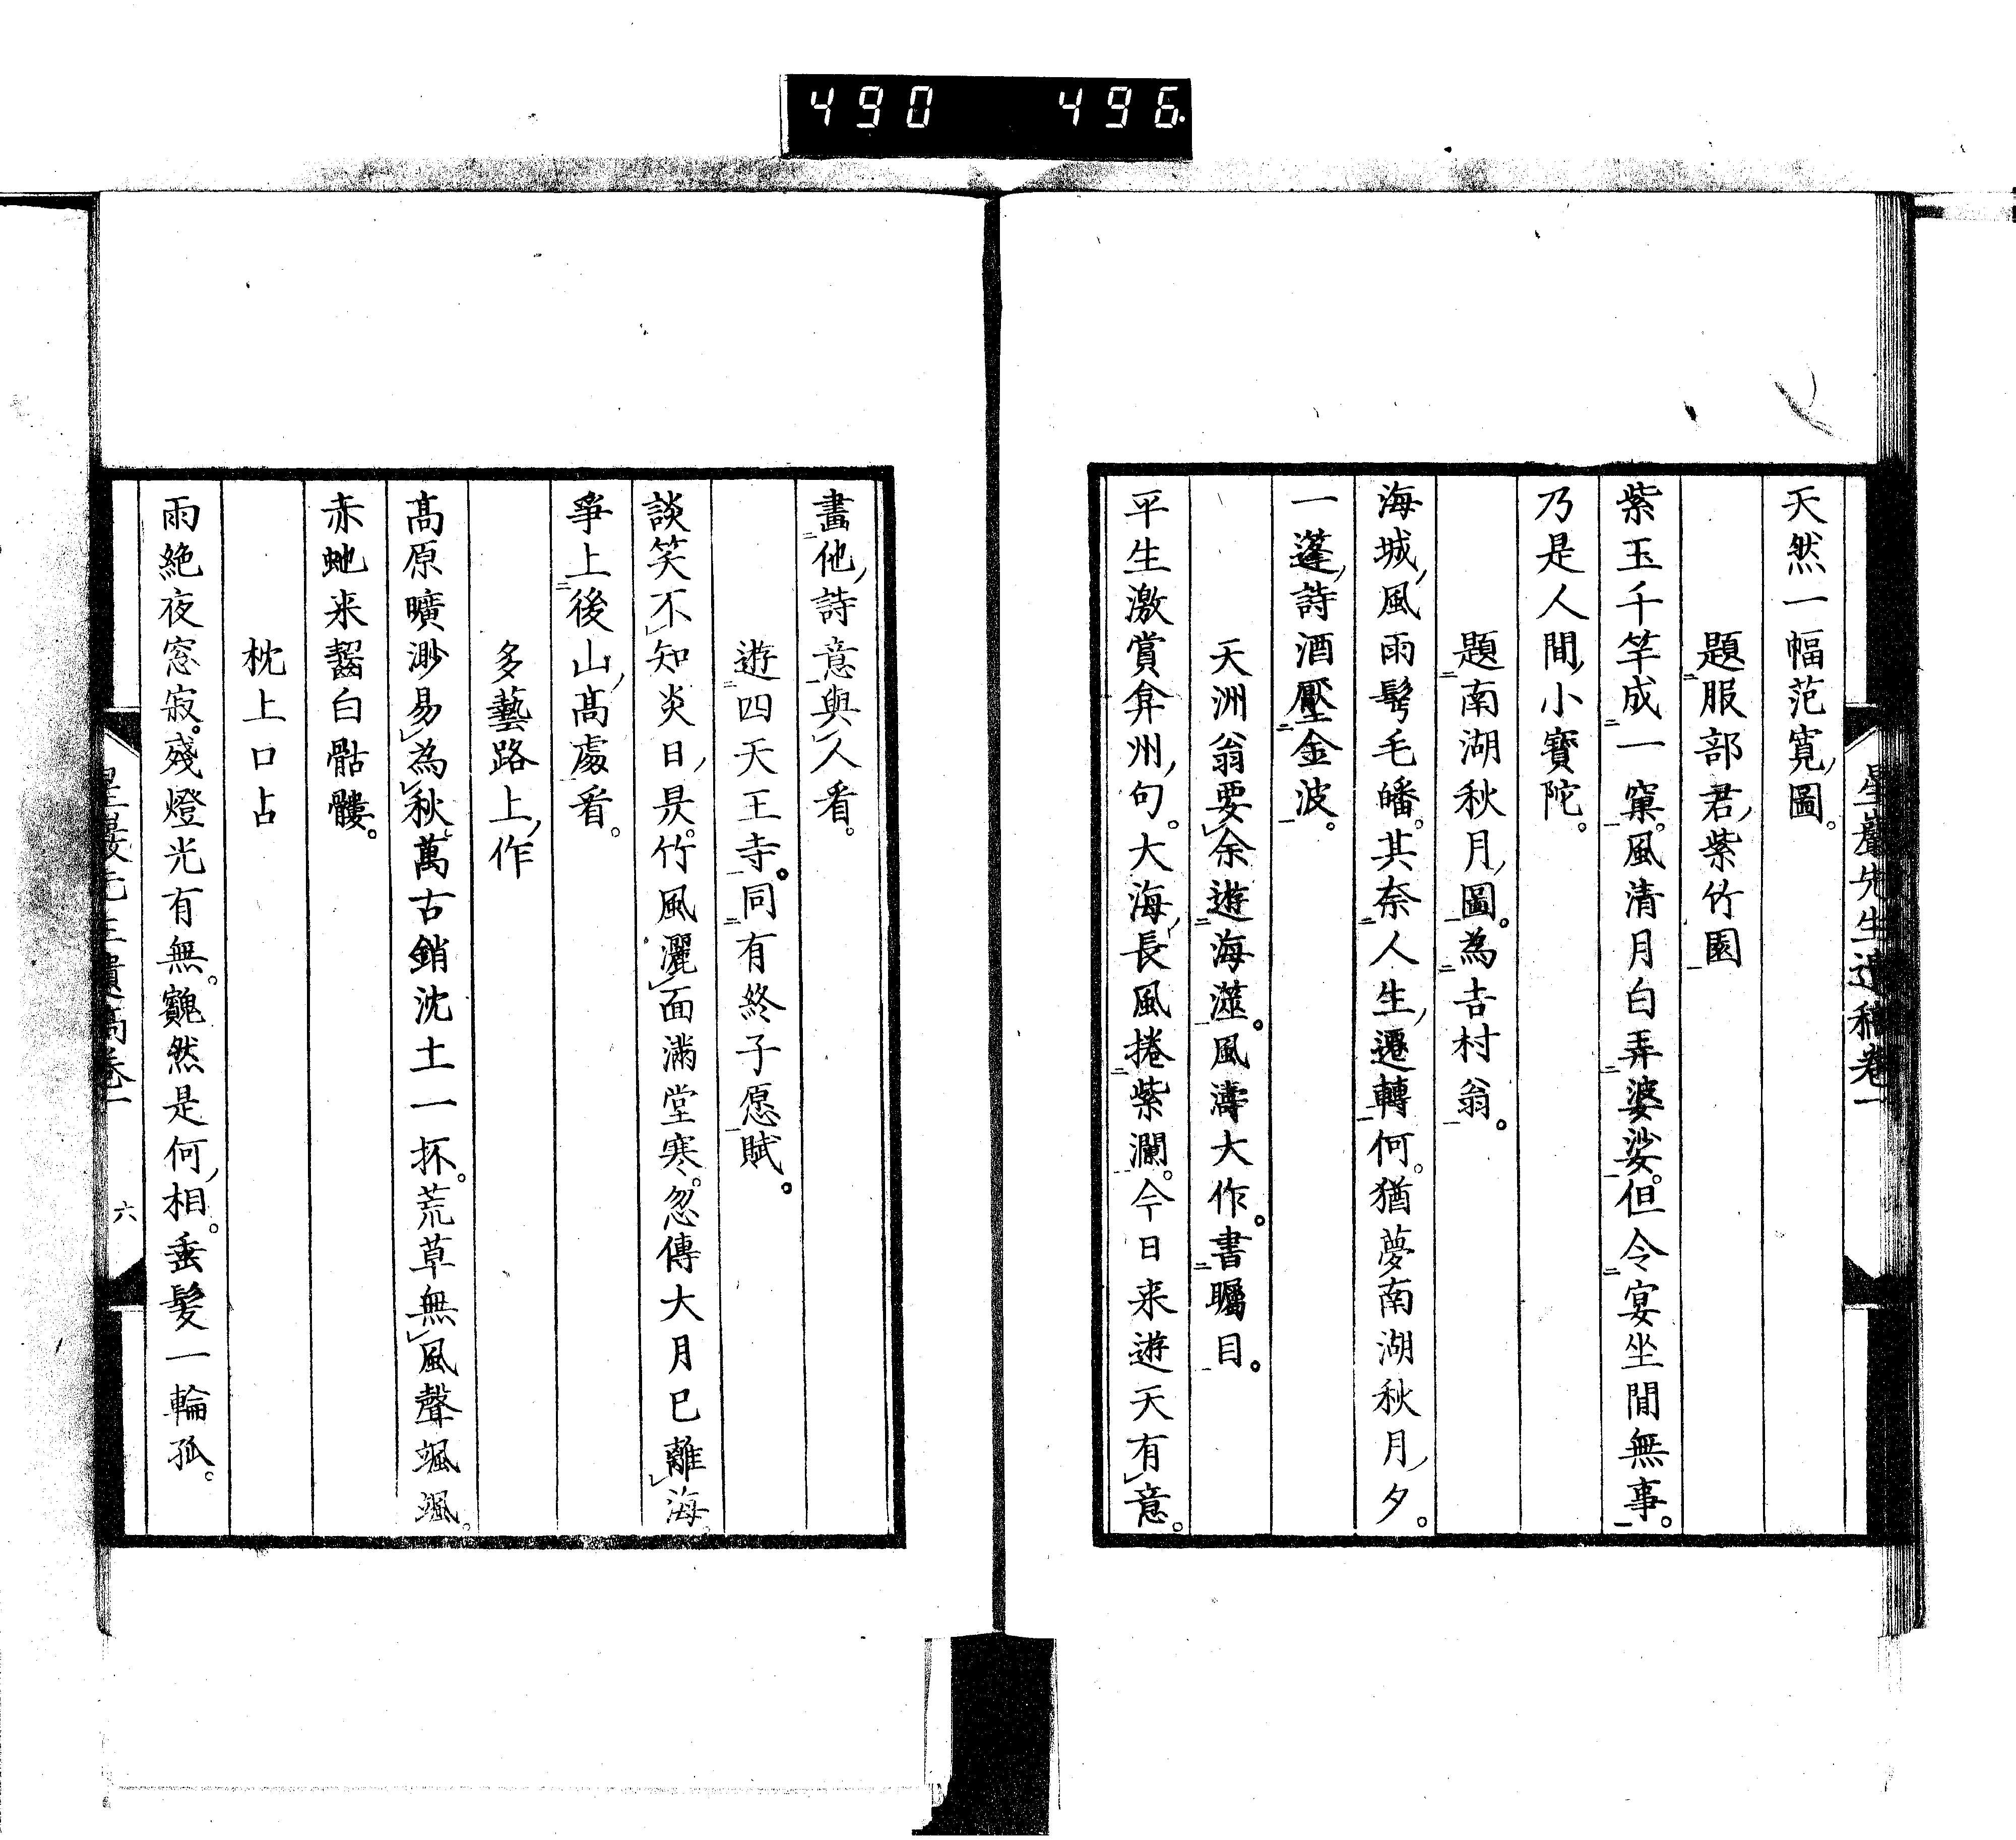 490 496
星巖先生遺稿卷一
天然一幅范寛圖。
題服部君紫竹園
紫玉千竿成一窠。風清月白弄婆娑。但令宴坐閒無事。
乃是人間小寶陀。
題南湖秋月圖。為吉村翁。
海城風雨髩毛皤。其奈人生遷轉何。猶夢南湖秋月夕。
一蓬詩酒壓金波。
天洲翁要余遊海澨。風濤大作。書矚目。
平生激賞弇州句。大海長風捲紫瀾。今日来遊天有意。
畫他詩意與人看。
遊四天王寺。同有終子愿賦。
談笑不知炎日昃。竹風灑面滿堂寒。忽傳大月已離海。
爭上後山高處看。
多藝路上作
高原曠渺易為秋。萬古銷沈土一抔。荒草無風聲颯颯。
赤虵来齧白骷髏。
枕上口占
雨絶夜窓寂。殘燈光有無。巍然是何相。垂髪一輪孤。
星巖先生遺稿卷一
六